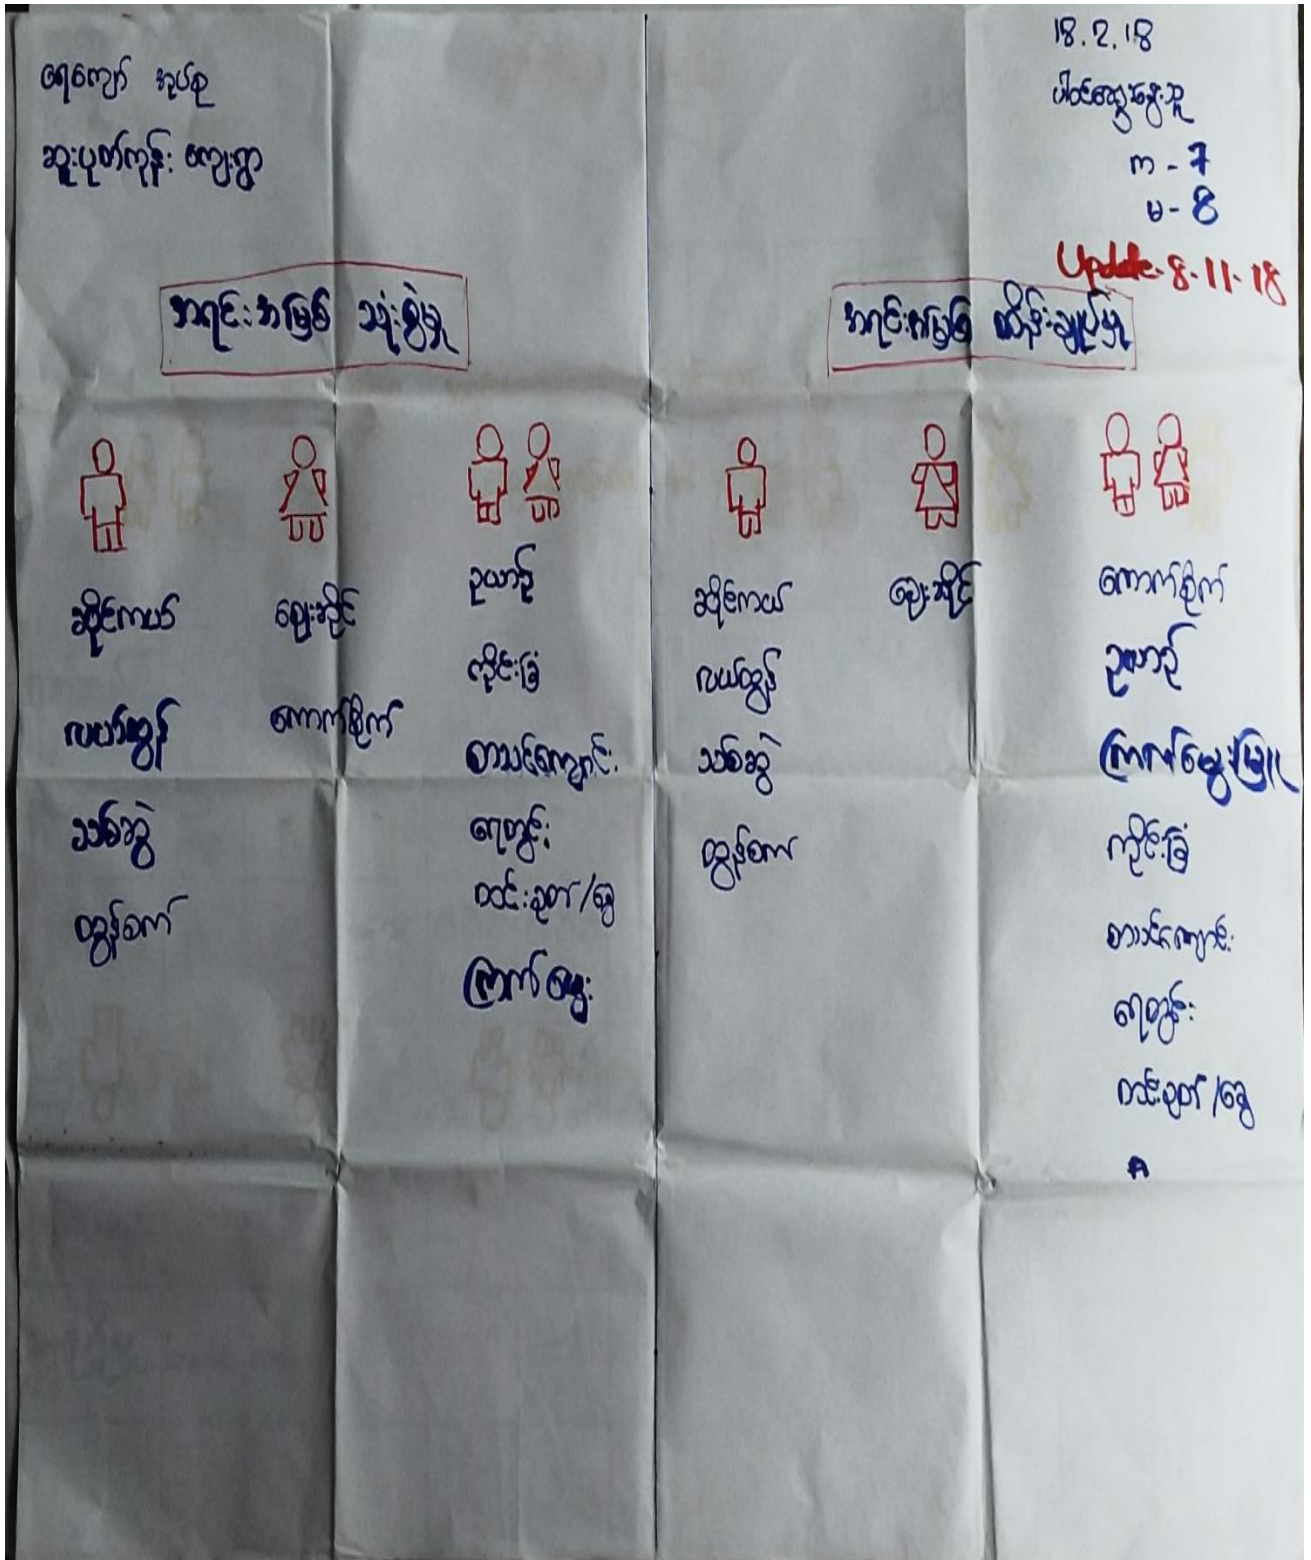 ရေကျော် အုပ်စု
ဆူးပုတ်ကုန်း ကျေးရွာ
18.2.18
ပါဝင်ဆွေးနွေးသူ
က - 7
မ - 8
Update-8-11-18
အရင်းအမြစ် သုံးစွဲမှု
ဆိုင်ကယ်
လယ်ထွန်
သစ်ဆွဲ
ထွန်စက်
ဈေးဆိုင်
ကောက်စိုက်
ဥယာဉ်
ကိုင်းခြံ
စာသင်ကျောင်း
ရေတွင်း
ထင်းခုတ်/ခွေ
ကြက်မွေး
အရင်းအမြစ် ထိန်းချုပ်မှု
ဆိုင်ကယ်
လယ်ထွန်
သစ်ဆွဲ
ထွန်စက်
ဈေးဆိုင်
ကောက်စိုက်
ဥယာဉ်
ကြက်မွေးမြူ
ကိုင်းခြံ
စာသင်ကျောင်း
ရေတွင်း
ထင်းခုတ်/ခွေ